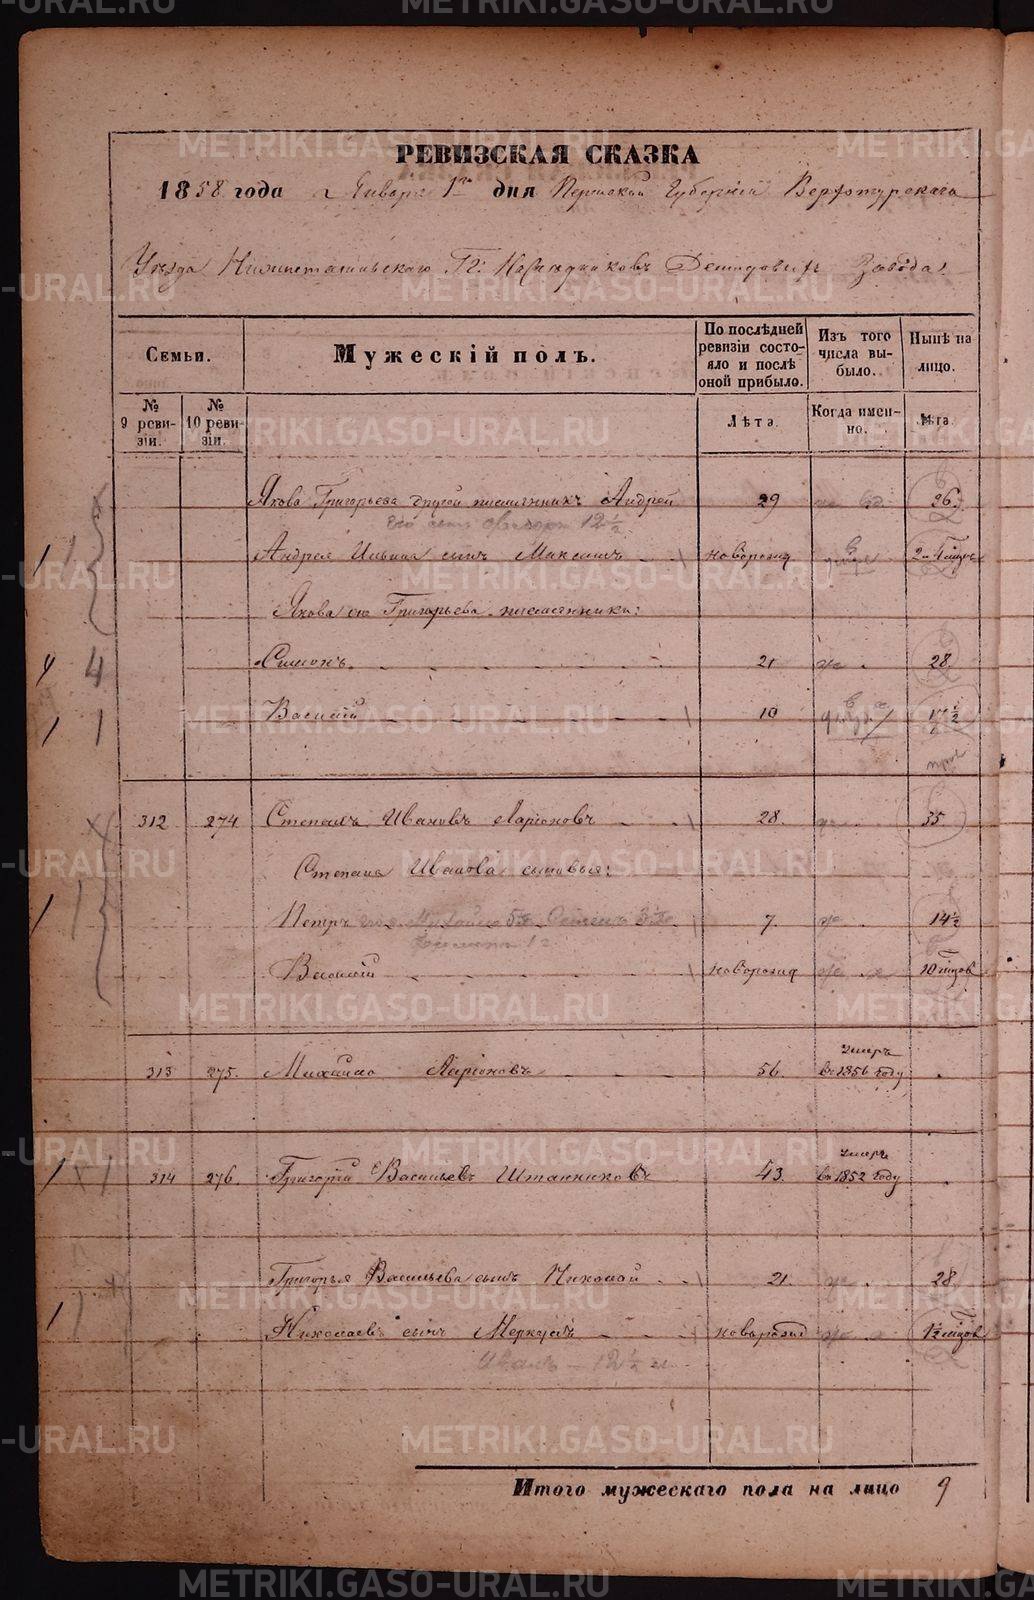 METRIKI.GASO-URAL.RU
РЕВИЗСКАЯ СКАЗКА
1858 года Января 1го дня Пермской Губернии Верхотурскаго
Уезда Нижнетагильскаго Гг: Наследниковъ Демидовыхъ Завода.
Семьи. Мужескій полъ. По послѣдней ревизіи состояло и послѣ оной прибыло. Изъ того числа выбыло. Нынѣ на лицо.
№ 9 ревизіи. № 10 ревизіи. Лѣта. Когда именно. Лѣта.
Якова Григорьева другой племянникъ Андрей 29 26
Его сынъ 12½
1 Андрея Ильина сынъ Максимъ новорожд
Якова Григорьева племянники:
4 4 Симонъ 21 28
1 1 Василій 10 17½
312 274 Степанъ Иванов Ларіоновъ 28. 35
Степана Иванова сыновья:
1 1 Петръ 7. 14½
Василій новорожд 10 мцов
313 275. Михайло Ларіоновъ 56. умеръ в 1856 году
1 314 276. Григорій Васильевъ Штанниковъ 43. умеръ в 1852 году
Григорья Васильева сынъ Николай 21. 28
1 Николаевъ сынъ Меркулъ новорожд
Иванъ – 12½
Итого мужескаго пола на лицо 9